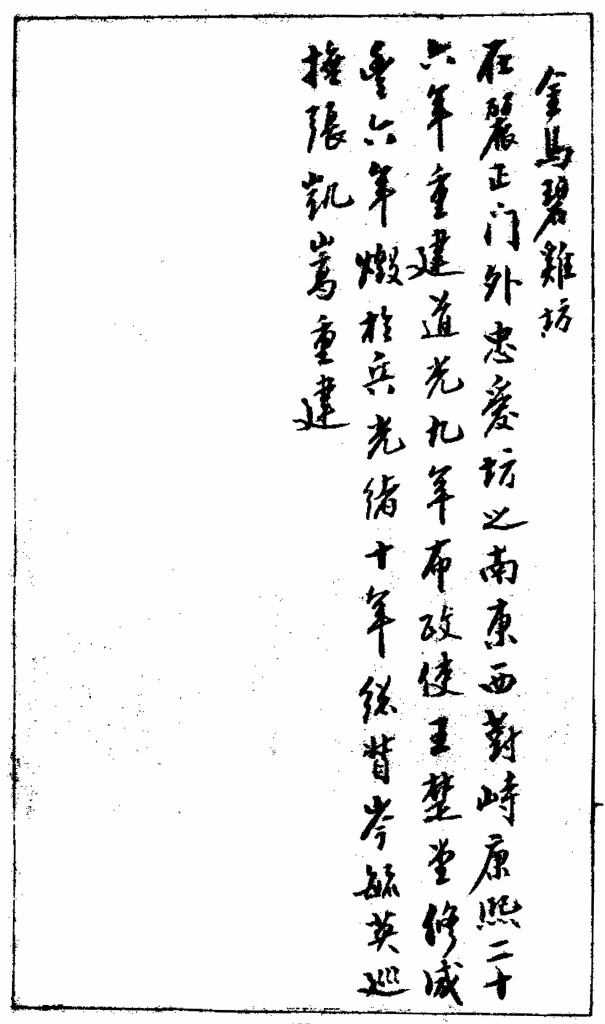 金馬碧雞坊
在麗正门外忠愛坊之南東西對峙康熙二十
六年重建道光九年布政使王楚堂修咸
豐六年燬於兵光緒十年総督岑毓英巡
撫張凱嵩重建